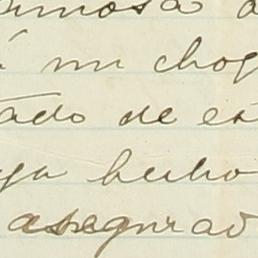 á mi chog
tado de es
ya hecho
asegurad